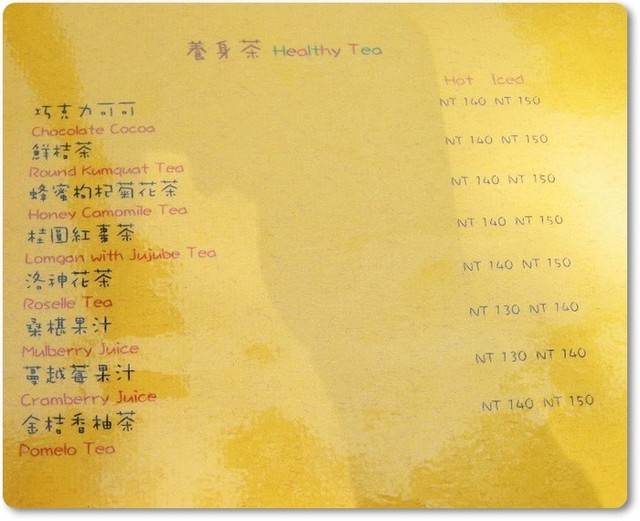 養身茶 Healthy Tea
Hot Iced
巧克力可可 NT 140 NT 150
Chocolate Cocoa
鮮桔茶 NT 140 NT 150
Round Kumquat Tea
蜂蜜枸杞菊花茶 NT 140 NT 150
Honey Camomile Tea
桂圓紅棗茶 NT 140 NT 150
Lomgan with Jujube Tea
洛神花茶 NT 140 NT 150
Roselle Tea
桑椹果汁 NT 130 NT 140
Mulberry Juice
蔓越莓果汁 NT 130 NT 140
Cramberry Juice
金桔香柚茶 NT 140 NT 150
Pomelo Tea